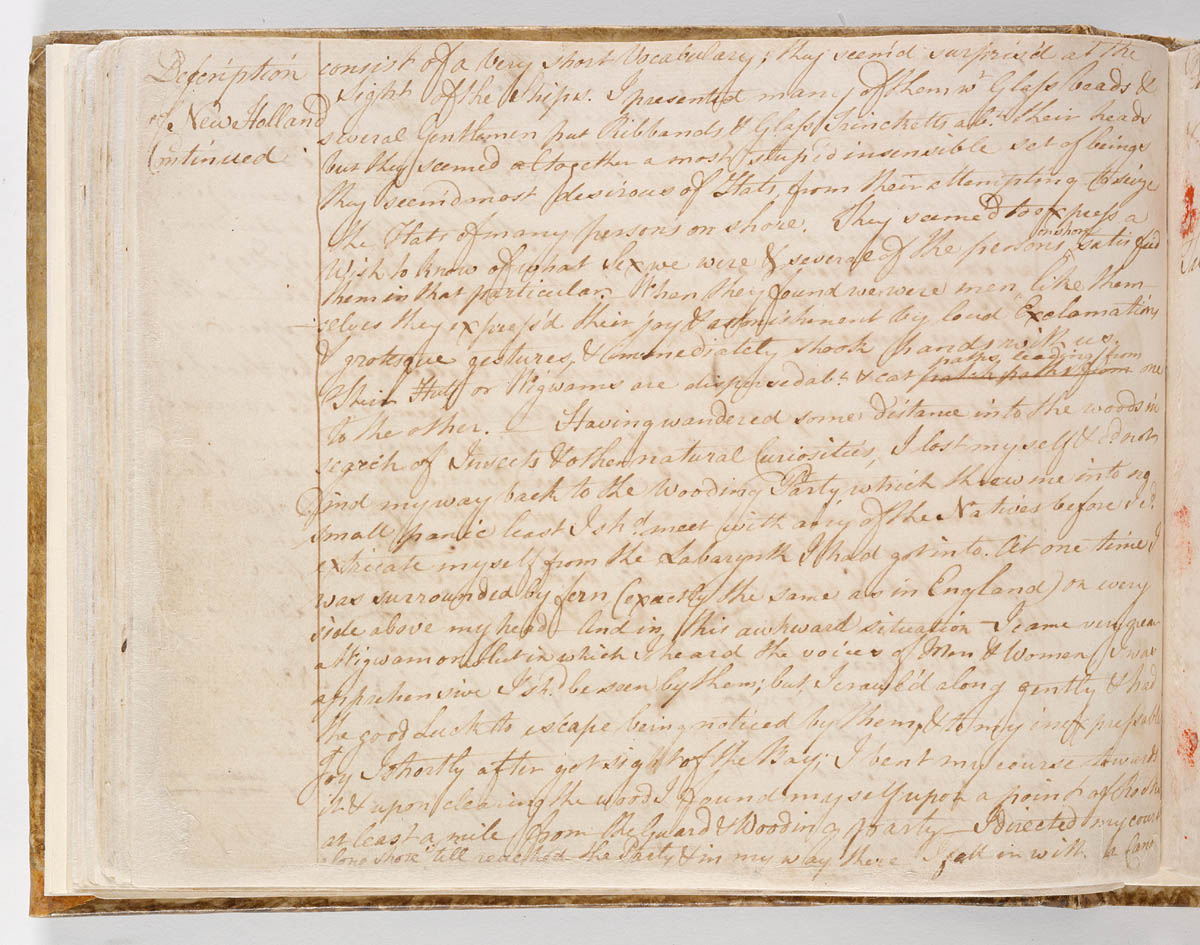 Description
of New Holland
Continued
consist of a very short Vocabulary; they seem'd surpris'd at the
sight of the Ships. I presented many of them wt Glass beads &
several Gentlemen put Ribbands & Glass Trincketts abt their heads
but they seemed altogether a most stupid insensible set of beings
they seem'd most desirous of Hats from their attempting to seize
the Hats of many persons on shore. They seemed to express a
wish to know of what sex we were & several of the persons on shore satisfied
them in that particular. When they found we were men like them-
-selves they express'd their joy & astonishment by loud Exclamations
& grotesque gestures, & immediately shook hands with us.
Their Huts or Wigwams are dispersed abt & paths, leading from one
to the other. — Having wandered some distance into the woods in
search of Insects & other natural Curiosities, I lost myself & cd not
find my way back to the Wooding Party which threw me into no
small panic least I shd meet with any of the Natives before I cd
extricate myself from the Labarynth I had got into. At one time I
was surrounded by fern (exactly the same as in England) on every
side above my head — And in this awkward situation I came very near
a Wigwam or Hut in which I heard the voices of Men & Women I was
apprehensive I shd be seen by them; but I crawl'd along gently & had
the good luck to escape being noticed by them, & to my inexpressable
joy I shortly after got sight of the Bay; I bent my course towards
it & upon clearing the wood I found myself upon a point of Rocks
at least a mile from the Guard & Wooding party — I directed my course
along shore 'till reached the Party & in my way there I fell in with a